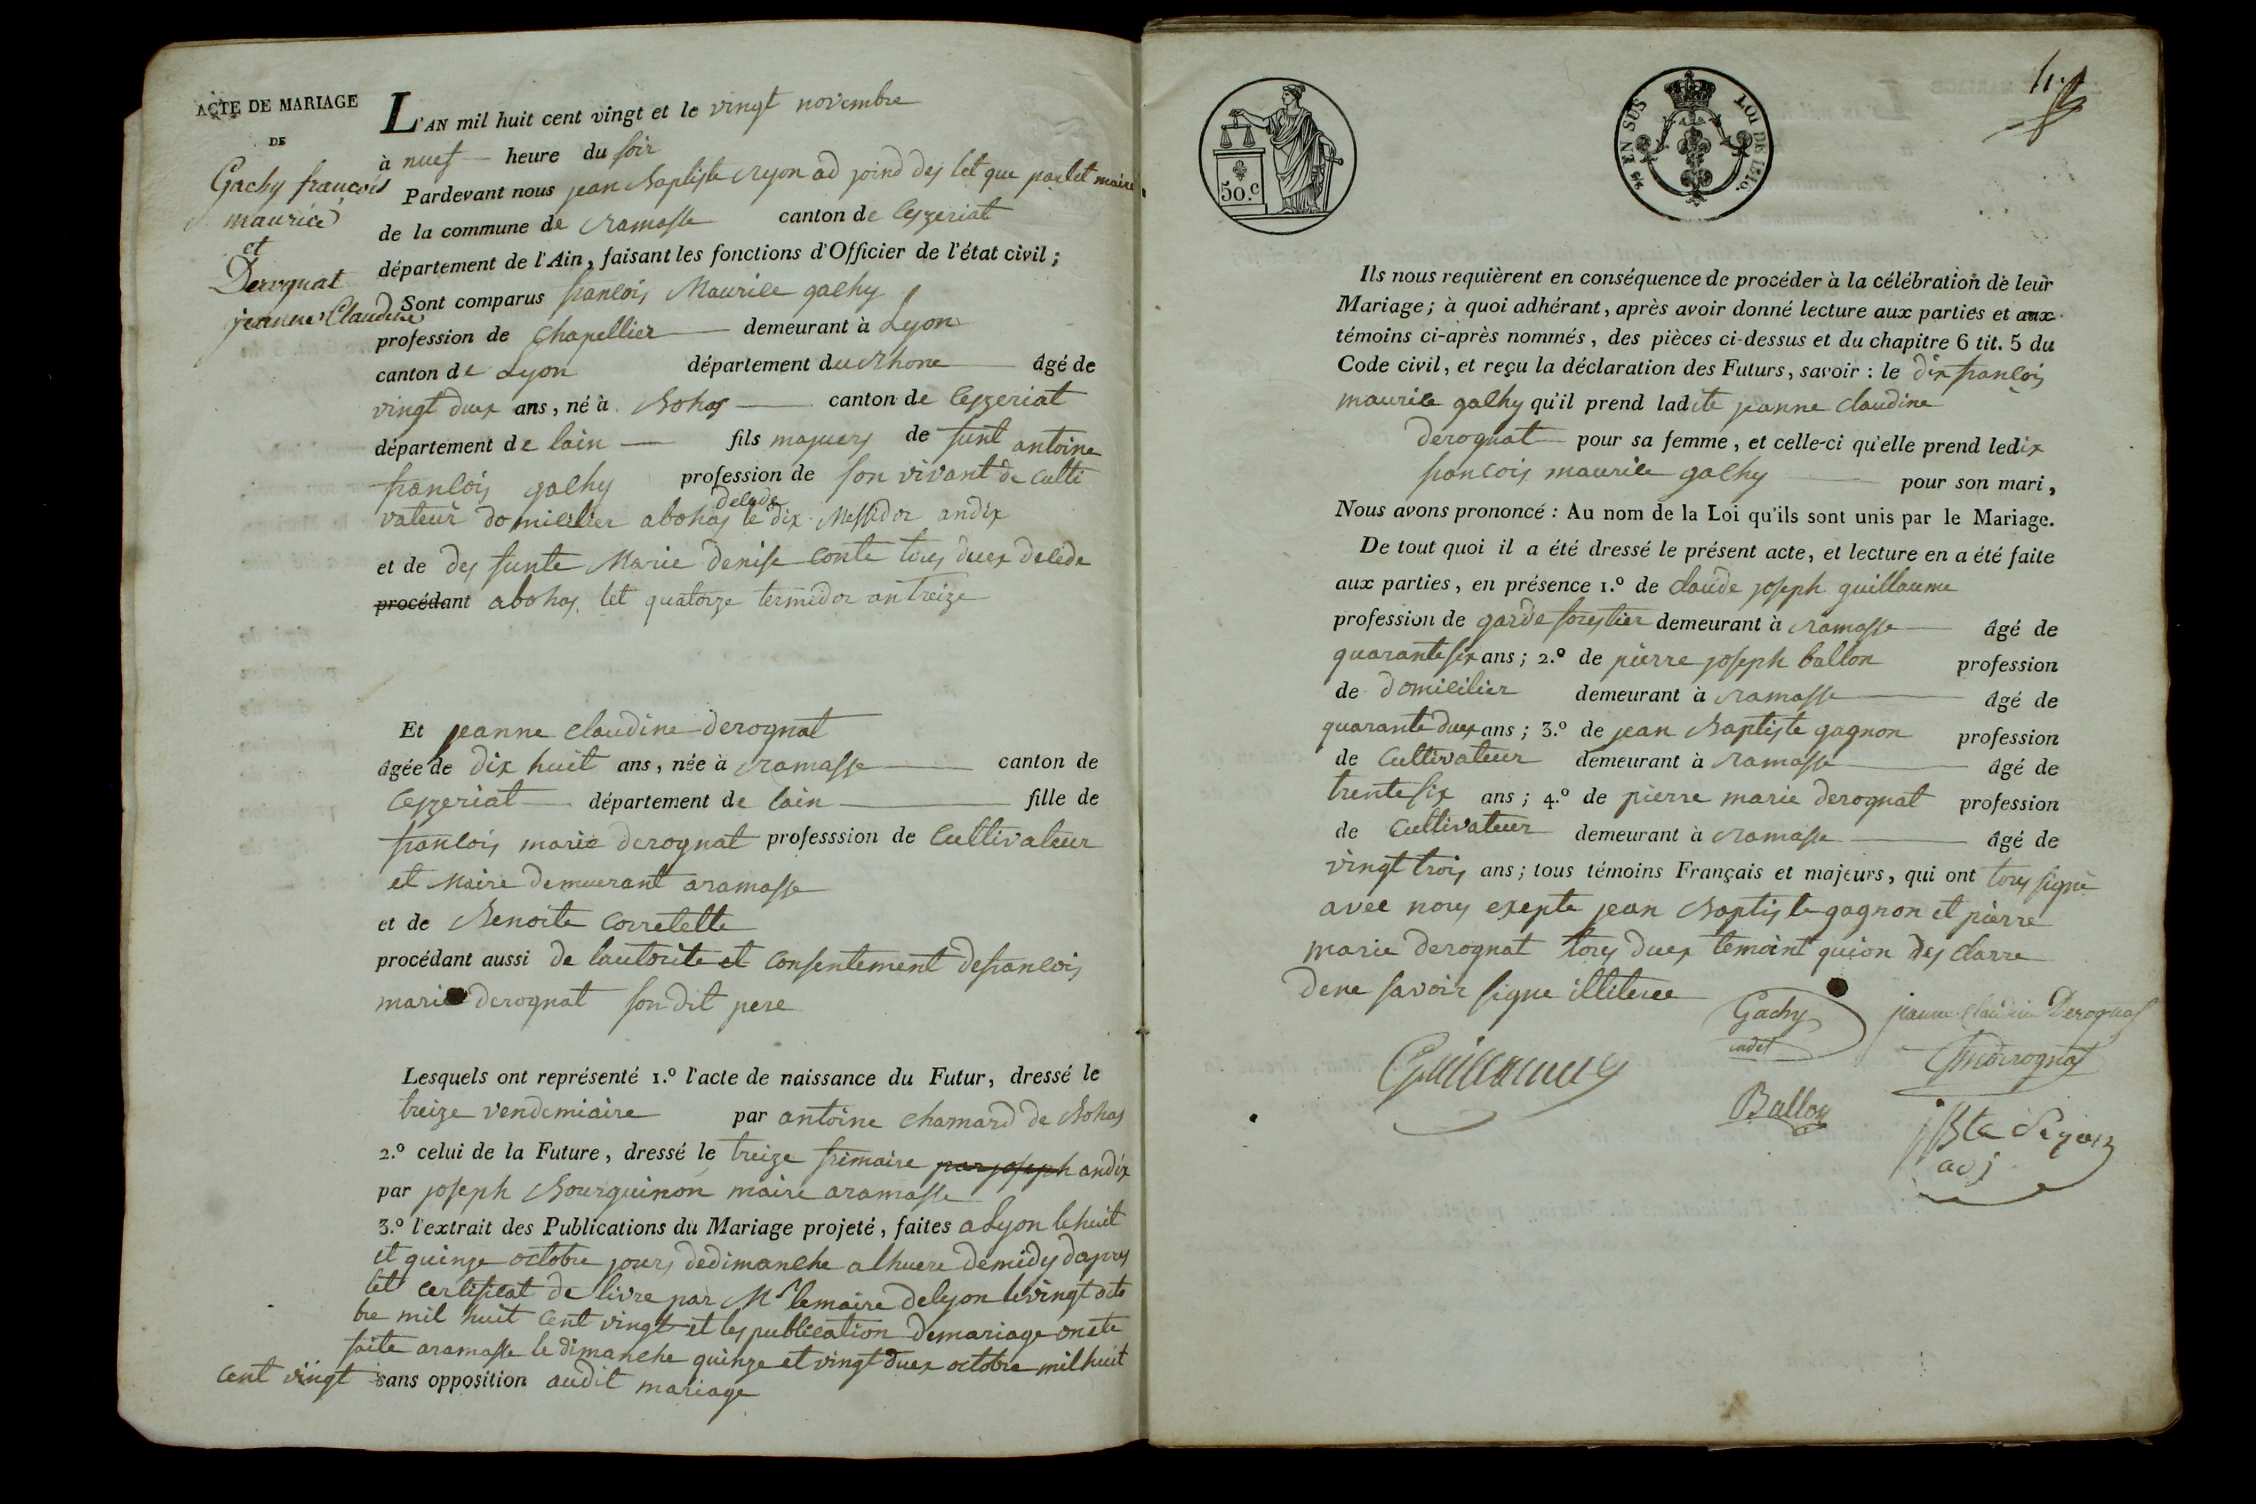 ACTE DE MARIAGE
DE
Gachy françois
maurice
et
Derognat
jeanne Claudine
L'AN mil huit cent vingt et le vingt novembre
à nuef heure du soir
Pardevant nous jean Baptiste ryon ad joind des let que par let maire
de la commune de ramasse canton de Ceyzeriat
département de l'Ain, faisant les fonctions d'Officier de l'état civil;
Sont comparus francois Maurice gachy
profession de Chapellier demeurant à Lyon
canton de Lyon département du rhone âgé de
vingt duex ans, né à Bohas canton de Ceyzeriat
département de lain fils majuers de funt antoine
francois gachy profession de son vivant de culti
decede
vateur domicilier abohas le dix Messidor an dix
et de des funte Marie denise conte tous duex decede
procédant abohas let quatorze termidor an treize
Et jeanne claudine derognat
âgée de dix huit ans, née à ramasse canton de
Ceyzeriat département de lain fille de
francois marie derognat professsion de Cultivateur
et Maire demuerant aramasse
et de Benoite Corretelle
procédant aussi de lautorite et consentement defrancois
marie derognat son dit pere
Lesquels ont représenté 1.º l'acte de naissance du Futur, dressé le
treize vendemiaire par antoine chamard de Bohas
2.º celui de la Future, dressé le treize frimaire par joseph andix
par joseph Bourguinon maire aramasse
3.º l'extrait des Publications du Mariage projeté, faites a Lyon le huit
et quinze octobre jours dedimanche alhuere demidy dapres
let certificat de livre par Mr lemaire delyon le vingt octo
bre mil huit cent vingt et les publication demariage onete
faite aramasse le dimanche quinze et vingt duex octobre mil huit
cent vingt sans opposition audit mariage
50.c
EN SUS
LOI DE 1816.
Ils nous requièrent en conséquence de procéder à la célébration de leur
Mariage; à quoi adhérant, après avoir donné lecture aux parties et aux
témoins ci-après nommés, des pièces ci-dessus et du chapitre 6 tit. 5 du
Code civil, et reçu la déclaration des Futurs, savoir : le dix francois
maurice gachy qu'il prend ladite jeanne claudine
derognat pour sa femme, et celle-ci qu'elle prend ledix
francois maurice gachy pour son mari,
Nous avons prononcé : Au nom de la Loi qu'ils sont unis par le Mariage.
De tout quoi il a été dressé le présent acte, et lecture en a été faite
aux parties, en présence 1.º de claude joseph guillaume
profession de garde forestier demeurant à ramasse âgé de
quarante six ans; 2.º de pierre joseph ballon profession
de domicilier demeurant à ramasse âgé de
quarante duex ans; 3.º de jean Baptiste gagnon profession
de Cultivateur demeurant à ramasse âgé de
trente six ans; 4.º de pierre marie derognat profession
de Cultivateur demeurant à ramasse âgé de
vingt trois ans; tous témoins Français et majeurs, qui ont tous signé
avec nous exepte jean Baptiste gagnon et pierre
marie derognat tous duex temoint quion des clarre
dene savoir signe illiteree
Gachy
cadet
jeanne claudine Derognat
Guillaume
fmderognat
Ballon
adj